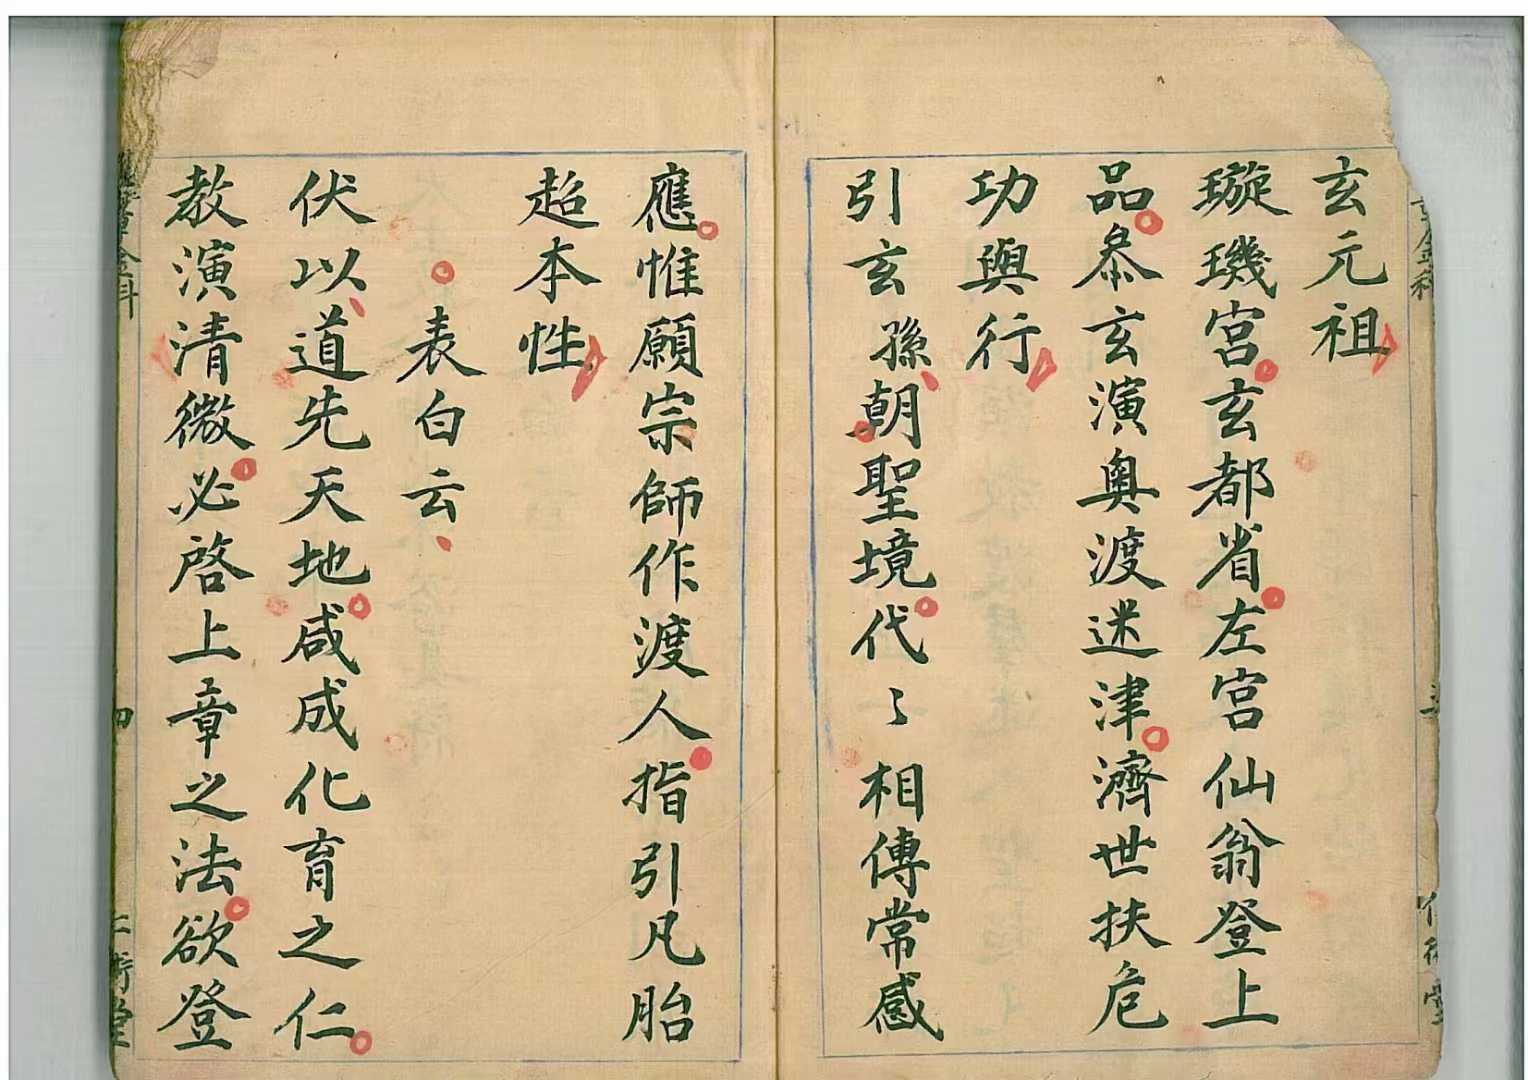 玄元祖
璇璣宮玄都省左宮仙翁登上
品叅玄演奧渡迷津濟世扶危
功與行
引玄孫朝聖境代〻相傳常感
應惟願宗師作渡人指引凡胎
超本性
表白云
伏以道先天地咸成化育之仁
教演清微必啓上章之法欲登
金科